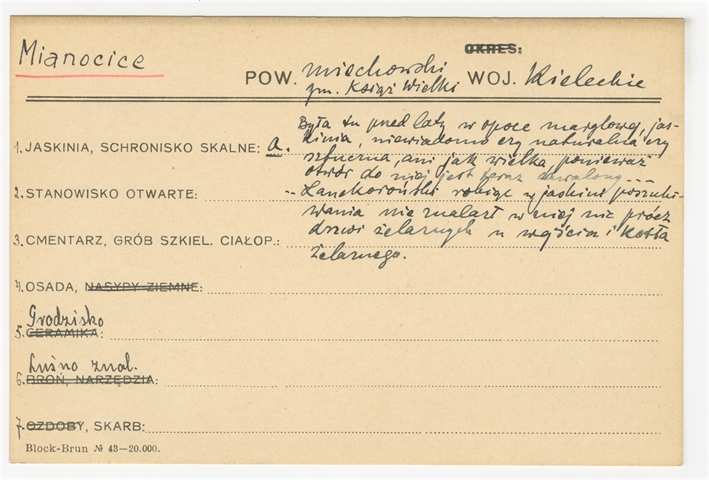 Mianocice
OKRES:
POW. miechowski WOJ. Kieleckie
gm. Książ Wielki
1. JASKINIA, SCHRONISKO SKALNE: a. Była tu przed laty w opoce marglowej, jas-
kinia, niewiadomo czy naturalna czy
sztuczna, ani jak wielka, ponieważ
otwór do niej jest teraz zawalony...
2. STANOWISKO OTWARTE: -- Lanckoroński robiąc w jaskini poszuki-
wania nie znalazł w niej nic prócz
3. CMENTARZ, GRÓB SZKIEL. CIAŁOP.: drzwi żelaznych u wejścia i kotła
żelaznego.
4. OSADA, NASYPY ZIEMNE:
Grodzisko
5. CERAMIKA:
Luźno znal.
6. BROŃ, NARZĘDZIA:
7. OZDOBY, SKARB:
Block-Brun № 43—20.000.